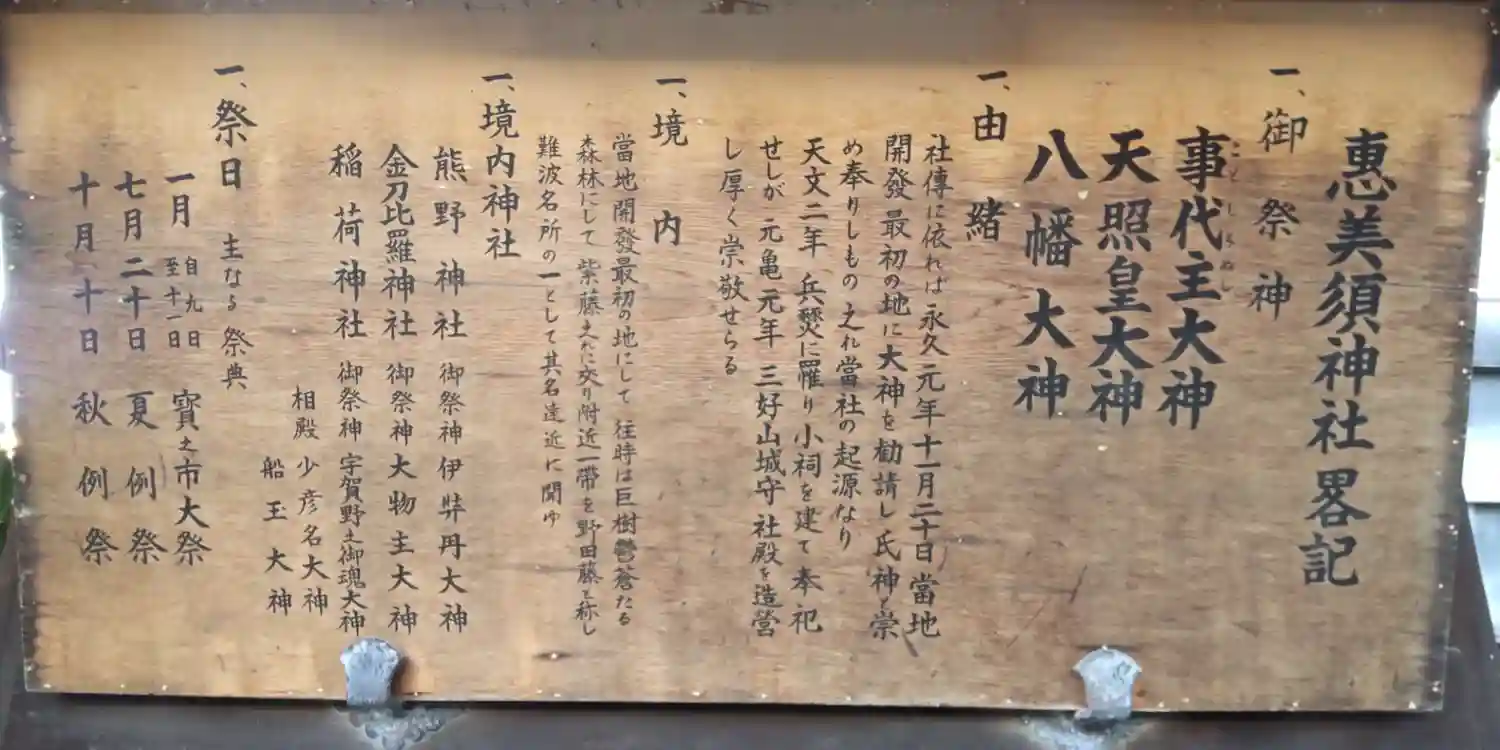 惠美須神社畧記
一、御祭神
事代主大神
ことしろぬし
天照皇大神
八幡大神
一、由緒
社傳に依れば永久元年十一月二十日當地
開發最初の地に大神を勸請し氏神と崇
め奉りしもの之れ當社の起源なり
天文二年 兵燹に罹り小祠を建て奉祀
せしが 元亀元年 三好山城守 社殿を造営
し厚く崇敬せらる
一、境内
當地開發最初の地にして 往時は巨樹鬱蒼たる
森林にして 紫藤之れに交り附近一帶を野田藤と称し
難波名所の一として其名遠近に聞ゆ
一、境内神社
熊野神社 御祭神 伊弉冊大神
金刀比羅神社 御祭神 大物主大神
稲荷神社 御祭神 宇賀野之御魂大神
相殿 少彦名大神
船玉大神
一、祭日 主なる祭典
一月 自九日 至十一日 寶之市大祭
七月二十日 夏例祭
十月二十日 秋例祭